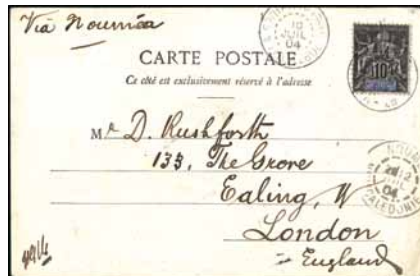 Via Nouméa
10
JUIL
04
CARTE POSTALE
Ce côté est exclusivement réservé à l'adresse
10
Mr D. Rushforth
133, The Grove
Ealing, W
London
England
NOUM
04
CALEDONIE